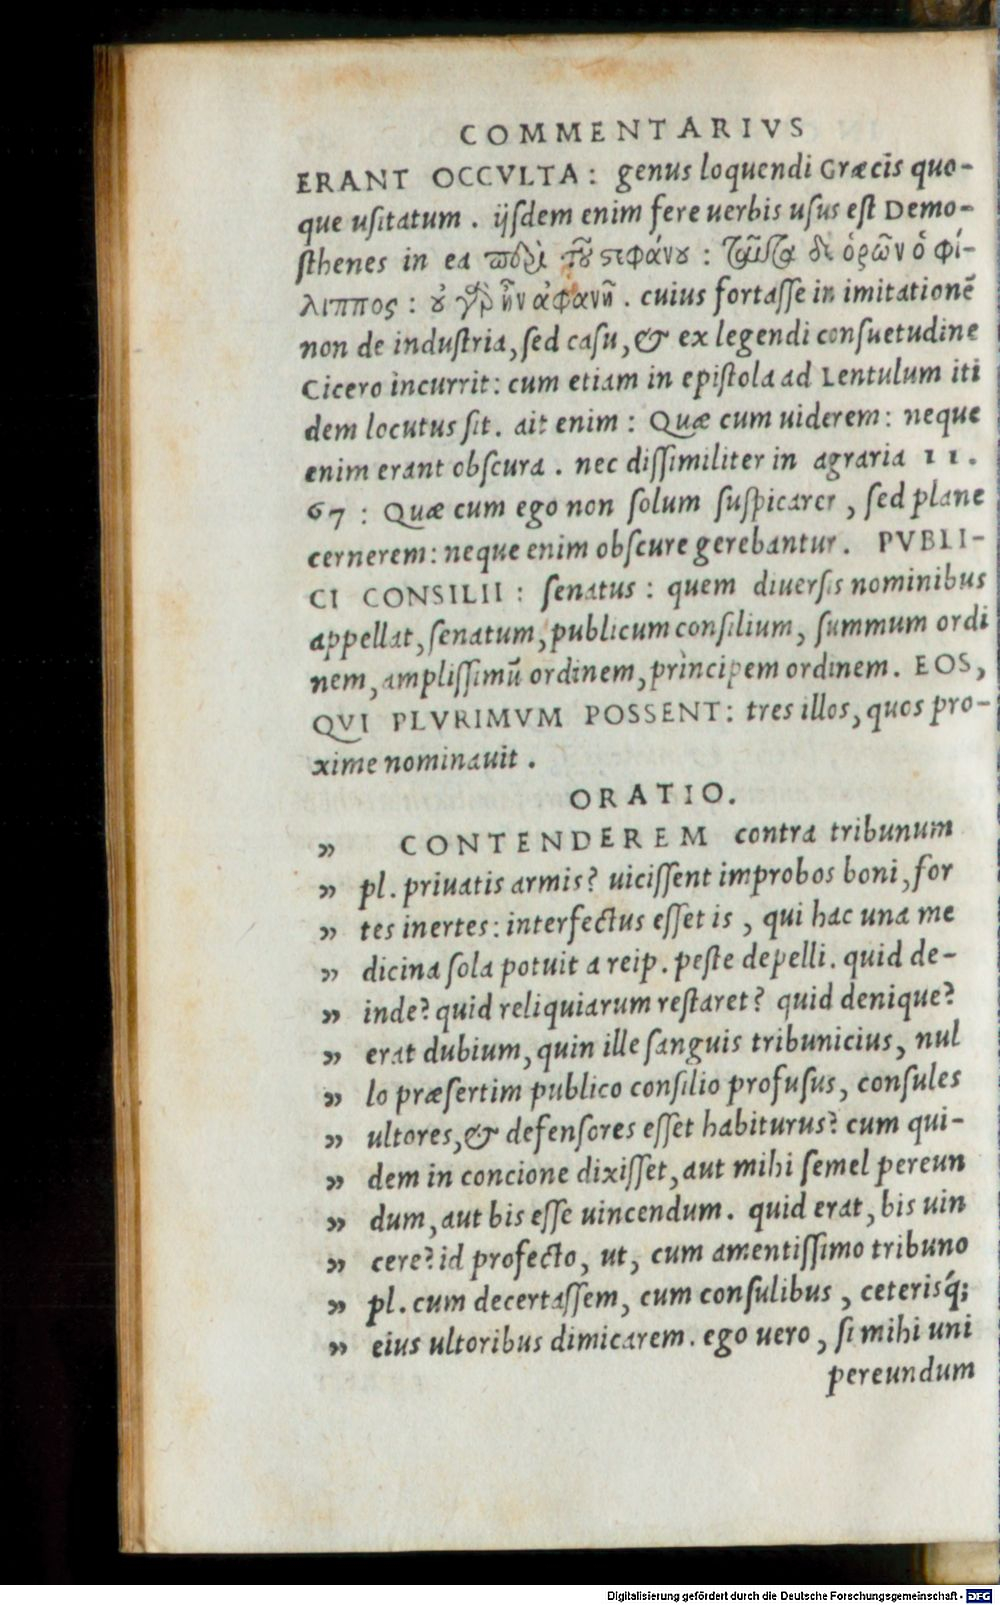 COMMENTARIVS
ERANT OCCVLTA: genus loquendi Græcis quo-
que usitatum. ijsdem enim fere uerbis usus est Demo-
sthenes in ea περὶ τοῦ στεφάνου: ταῦτα δὲ ὁρῶν ὁ φί-
λιππος: οὐ γὰρ ἦν ἀφανῆ. cuius fortasse in imitationē
non de industria, sed casu, & ex legendi consuetudine
Cicero incurrit: cum etiam in epistola ad Lentulum iti
dem locutus sit. ait enim: Quæ cum uiderem: neque
enim erant obscura. nec dissimiliter in agraria 11.
67: Quæ cum ego non solum suspicarer, sed plane
cernerem: neque enim obscure gerebantur. PVBLI-
CI CONSILII: senatus: quem diuersis nominibus
appellat, senatum, publicum consilium, summum ordi
nem, amplissimū ordinem, principem ordinem. EOS,
QVI PLVRIMVM POSSENT: tres illos, quos pro-
xime nominauit.
ORATIO.
» CONTENDEREM contra tribunum
» pl. priuatis armis? uicissent improbos boni, for
» tes inertes: interfectus esset is, qui hac una me
» dicina sola potuit a reip. peste depelli. quid de-
» inde? quid reliquiarum restaret? quid denique?
» erat dubium, quin ille sanguis tribunicius, nul
» lo præsertim publico consilio profusus, consules
» ultores, & defensores esset habiturus? cum qui-
» dem in concione dixisset, aut mihi semel pereun
» dum, aut bis esse uincendum. quid erat, bis uin
» cere? id profecto, ut, cum amentissimo tribuno
» pl. cum decertassem, cum consulibus, ceterisq́;
» eius ultoribus dimicarem. ego uero, si mihi uni
pereundum
Digitalisierung gefördert durch die Deutsche Forschungsgemeinschaft - DFG